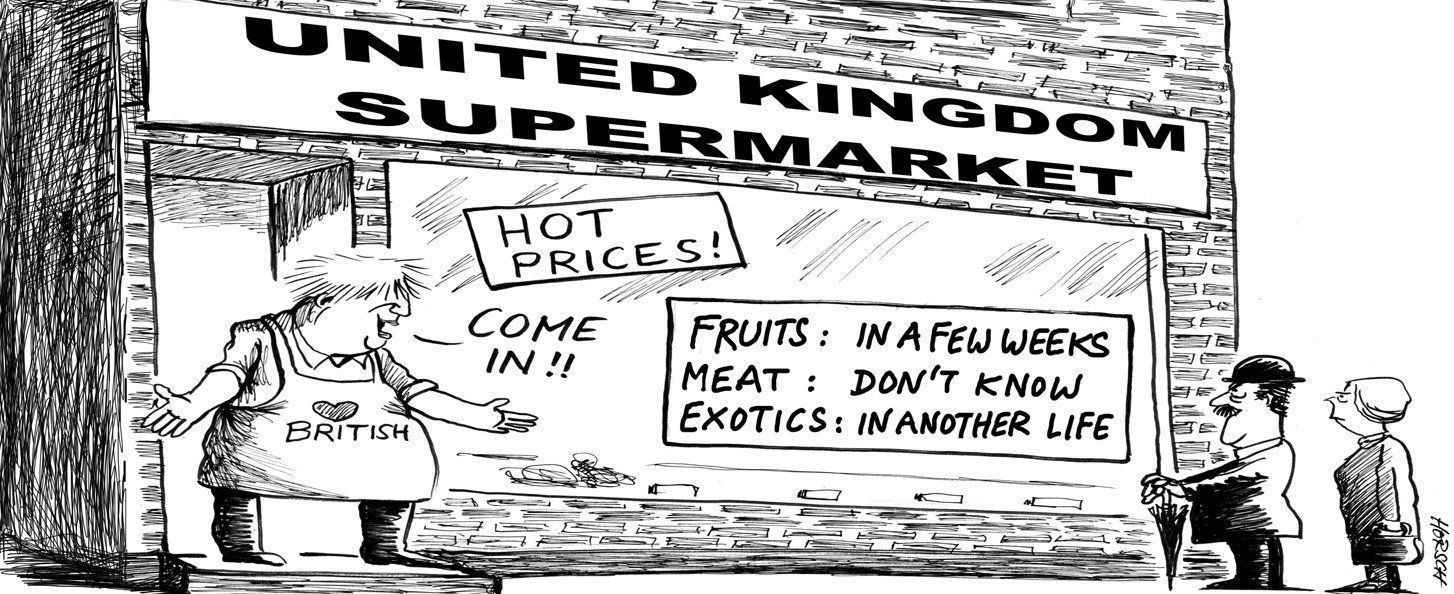 UNITED KINGDOM
SUPERMARKET
HOT
PRICES!
COME
IN!!
FRUITS: IN A FEW WEEKS
MEAT: DON'T KNOW
EXOTICS: IN ANOTHER LIFE
BRITISH
HORSCH